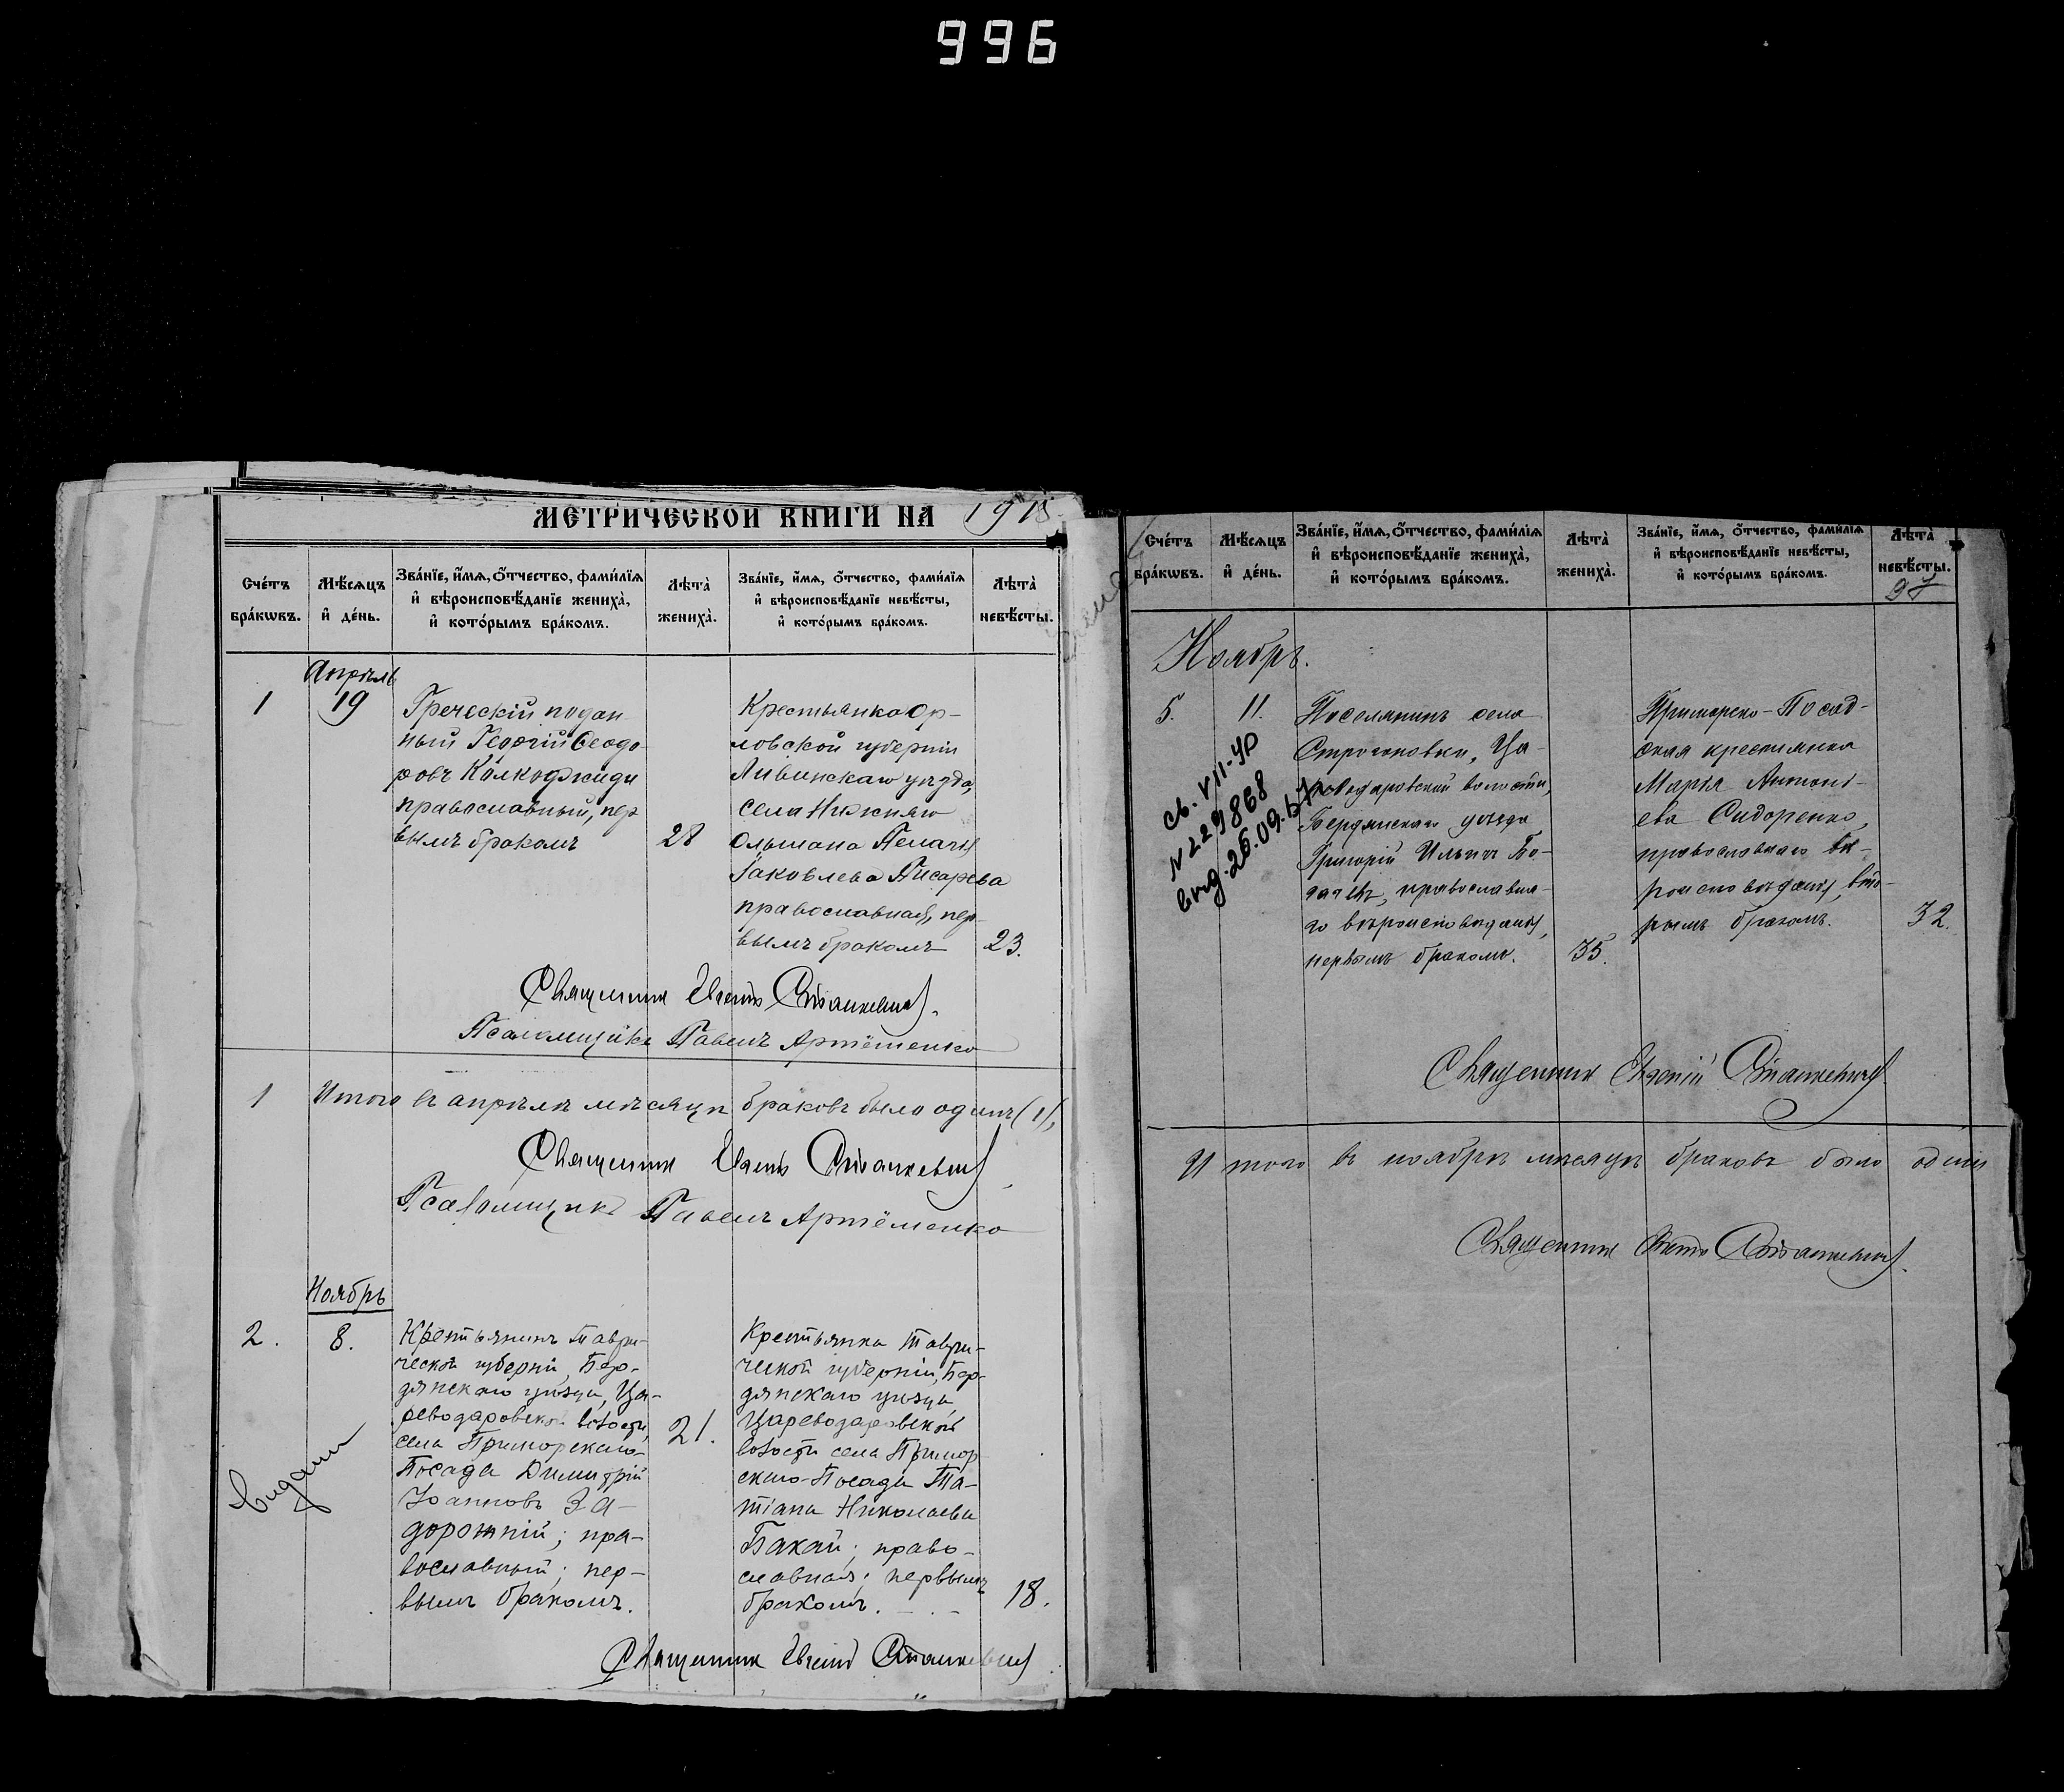 996
МЕТРИЧЕСКОЙ КНИГИ НА 1915
Счетъ браковъ.
Мѣсяцъ и день.
Званіе, имя, отчество, фамилія и вѣроисповѣданіе жениха, и которымъ бракомъ.
Лѣта жениха.
Званіе, имя, отчество, фамилія и вѣроисповѣданіе невѣсты, и которымъ бракомъ.
Лѣта невѣсты.
Апрѣль
1
19
Греческій подан-
ный Георгій Ѳеодо-
ровъ
православный, пер
вымъ бракомъ
28
Крестьянка Ор-
ловской губерніи
Ливинскаго уѣзда,
села Нижняго
Ольшана Пелагія
Іаковлева Писарева
православная, пер-
вымъ бракомъ
23.
Священник Евгеній Станкевичъ.
Псаломщикъ Павелъ Артёменко
1
Итого въ апрѣлѣ мѣсяцѣ браковъ было одинъ (1),
Священник Евгеній Станкевичъ
Псаломщикъ Павелъ Артёменко
Ноябрь
2.
8.
Видан
Крестьянинъ Таври-
ческой губерніи, Бер-
дянскаго уѣзда, Ца-
реводаровской волости,
села Приморскаго-
Посада Димитрій
Іоанновъ За-
дорожній; пра-
вославный; пер-
вымъ бракомъ.
21.
Крестьянка Таври-
ческой губерніи, Бер-
дянскаго уѣзда
Цареводаровской
волости села Примор
скаго-Посада Та-
тіана Николаева
Бакай; право-
славная; первымъ
бракомъ.
18.
Священник Евгеній Станкевичъ
Счетъ браковъ.
Мѣсяцъ и день.
Званіе, имя, отчество, фамилія и вѣроисповѣданіе жениха, и которымъ бракомъ.
Лѣта жениха.
Званіе, имя, отчество, фамилія и вѣроисповѣданіе невѣсты, и которымъ бракомъ.
Лѣта невѣсты.
97
Ноябрь.
5.
11.
св. VII-УР
N 229868
вид. 26.09.
Поселянинъ села
Строгоновки, Ца-
реводаровской волости,
Бердянскаго уѣзда
Григорій Ильичъ
православна-
го вѣроисповѣданія,
первымъ бракомъ.
35.
Приморско-Посад-
ская крестьянка
Марія Антоні-
ева Сидоренко,
православнаго вѣ-
роисповѣданія, вто-
рымъ бракомъ.
32.
Священник Евгеній Станкевичъ
Итого въ ноябрѣ мѣсяцѣ браковъ было один
Священник Евгеній Станкевичъ.